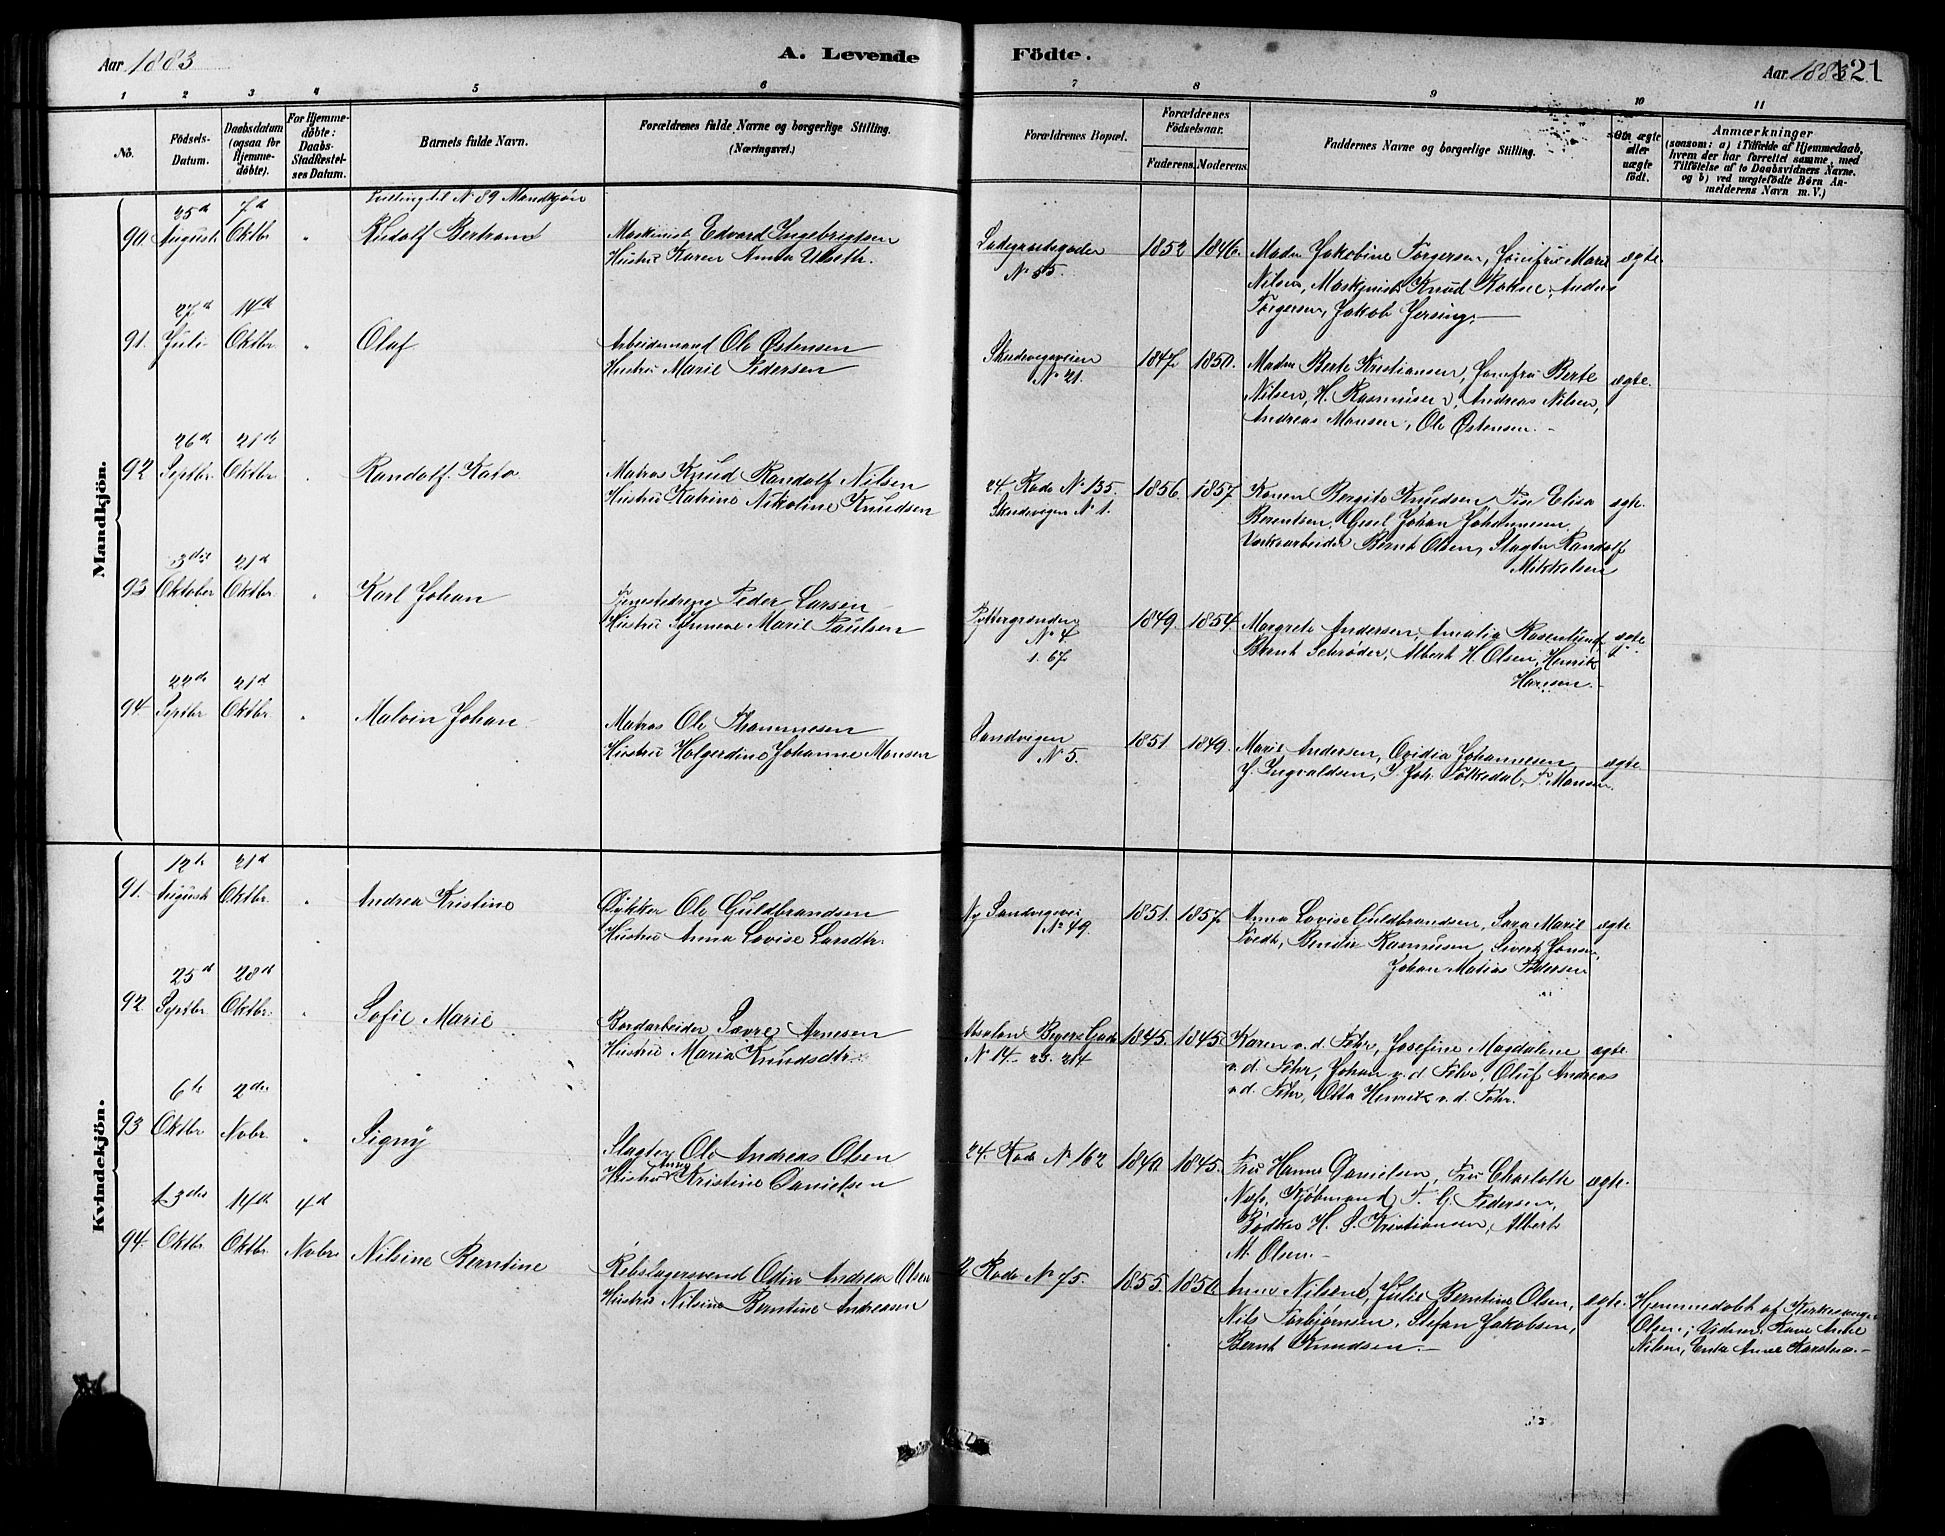 Aar 1883
A. Levende Födte.
Aar 1883 121
1 2 3 4 5 6 7 8 9 10 11
No.
Födsels-Datum.
Daabsdatum (ogsaa for Hjemmedöbte).
For Hjemmedöbte: Daabs-Stadfæstelses Datum.
Barnets fulde Navn.
Forældrenes fulde Navne og borgerlige Stilling. (Næringsvei.)
Forældrenes Bopæl.
Forældrenes Födselsaar.
Faderens. Moderens.
Faddernes Navne og borgerlige Stilling.
Om ægte eller uægte födt.
Anmærkninger
(saasom: a) i Tilfælde af Hjemmedaab, hvem der har forrettet samme, med Tilföielse af to Daabsvidners Navne. og b) ved uægtefödte Börn Anmelderens Navn m. V.)
Mandkjön.
Tvilling til No 89 Mandkjön
90 25d August 7d Oktbr. " Rudolf Bertram
Maskinist Edvard Ingebrigtsen
Hustru Karen Anna
Ladegaardsgaden No 55. 1852 1846.
Madm Jakobine Torgersen, Jomfru Marie
Nilsen, Maskinist Knud Roksne, Anders
Torgersen, Jakob
ægte.
91. 27d Juli 14d Oktbr. " Olaf
Arbeidsmand Ole Østensen
Hustru Marie Pedersen
Skudevigsveien No 21. 1847. 1850.
Madm Berte Kristiansen, Jomfru Berte
Nilsen, H. Rasmussen, Andreas Nilsen,
Andreas Monsen, Ole Østensen.
ægte.
92 26d Septbr. 21d Oktbr. " Randolf Kato
Matros Knud Randolf Nilsen
Hustru Katrine Nikoline Knudsen
24. Rode No 135. Skudevigen No 1. 1856. 1857.
Karen Bergite Knudsen, Elisa
Berentsen, Johan Johannesen
Værksarbeider Bernt Olsen, Slagter Randolf
Mikkelsen
ægte.
93 3die Oktober 21d Oktbr. " Karl Johan
Tjenestedreng Peder Larsen
Hustru Synneve Marie Paulsen
No 4 1. 67 1849. 1854.
Margrete Andersen, Amalia Rosenlund,
Bernt Schrøder, Albert H. Olsen, Henrik
Hansen.
ægte.
94. 22de Septbr. 21d Oktbr. " Malvin Johan
Matros Ole Thommesen
Hustru Holgerdine Johanne Monsen
Sandvigen No 5. 1851 1849.
Marie Andersen, Ovidia Johannesen
J. Ingvaldsen, J. Joh. Tolkedal, T. Monsen.
ægte
Kvindekjön.
91. 12te August 21d Oktbr. " Andrea Kristine
Dykker Ole Guldbrandsen
Hustru Anna Lovise Larsdtr.
Ny Sandvigsvei No 49. 1851. 1857
Anna Lovise Guldbrandsen, Sara Marie
Tvedt, Bendix Rasmussen, Sivert Jonsen,
Johan Matias Pedersen
ægte
92 25d Septbr. 28d Oktbr. " Sofie Marie
Bordarbeider Sævre Arnesen
Hustru Maria Knudsdtr.
Absalon Beyers Gade No 14 23. 214 1845. 1845.
Karen v. d. Fehr, Josefine Magdalene
v. d. Fehr, Johan v. d. Fehr, Oluf Andreas
v. d. Fehr, Otto Henrik v. d. Fehr.
ægte
93 6te Oktbr 2den Novbr. " Signy
Slagter Ole Andreas Olsen
Hustru Anna Kristine Danielsen
24. Rode No 162 1840 1845.
Fru Hanne Danielsen, Fru Charlotte
Kjøbmand T. G. Pedersen,
Bødker H. S. Kristiansen, Albert
M. Olsen.
ægte.
94. Oktbr. 14de Oktbr. 4d Novbr. Nilsine Berntine
Rebslagersvend Odin Andreas Olsen
Hustru Nilsine Berntine Andreasen
Rode No 75. 1855. 1850
Anna Nilsen, Julie Berntine Olsen,
Nils Torbjørnsen, Stefan Jakobsen,
Bernt Knudsen.
ægte.
Hjemmedøbt af Kirkesanger
Olsen; Vidner: Anne
Nilsen, Enke Anne